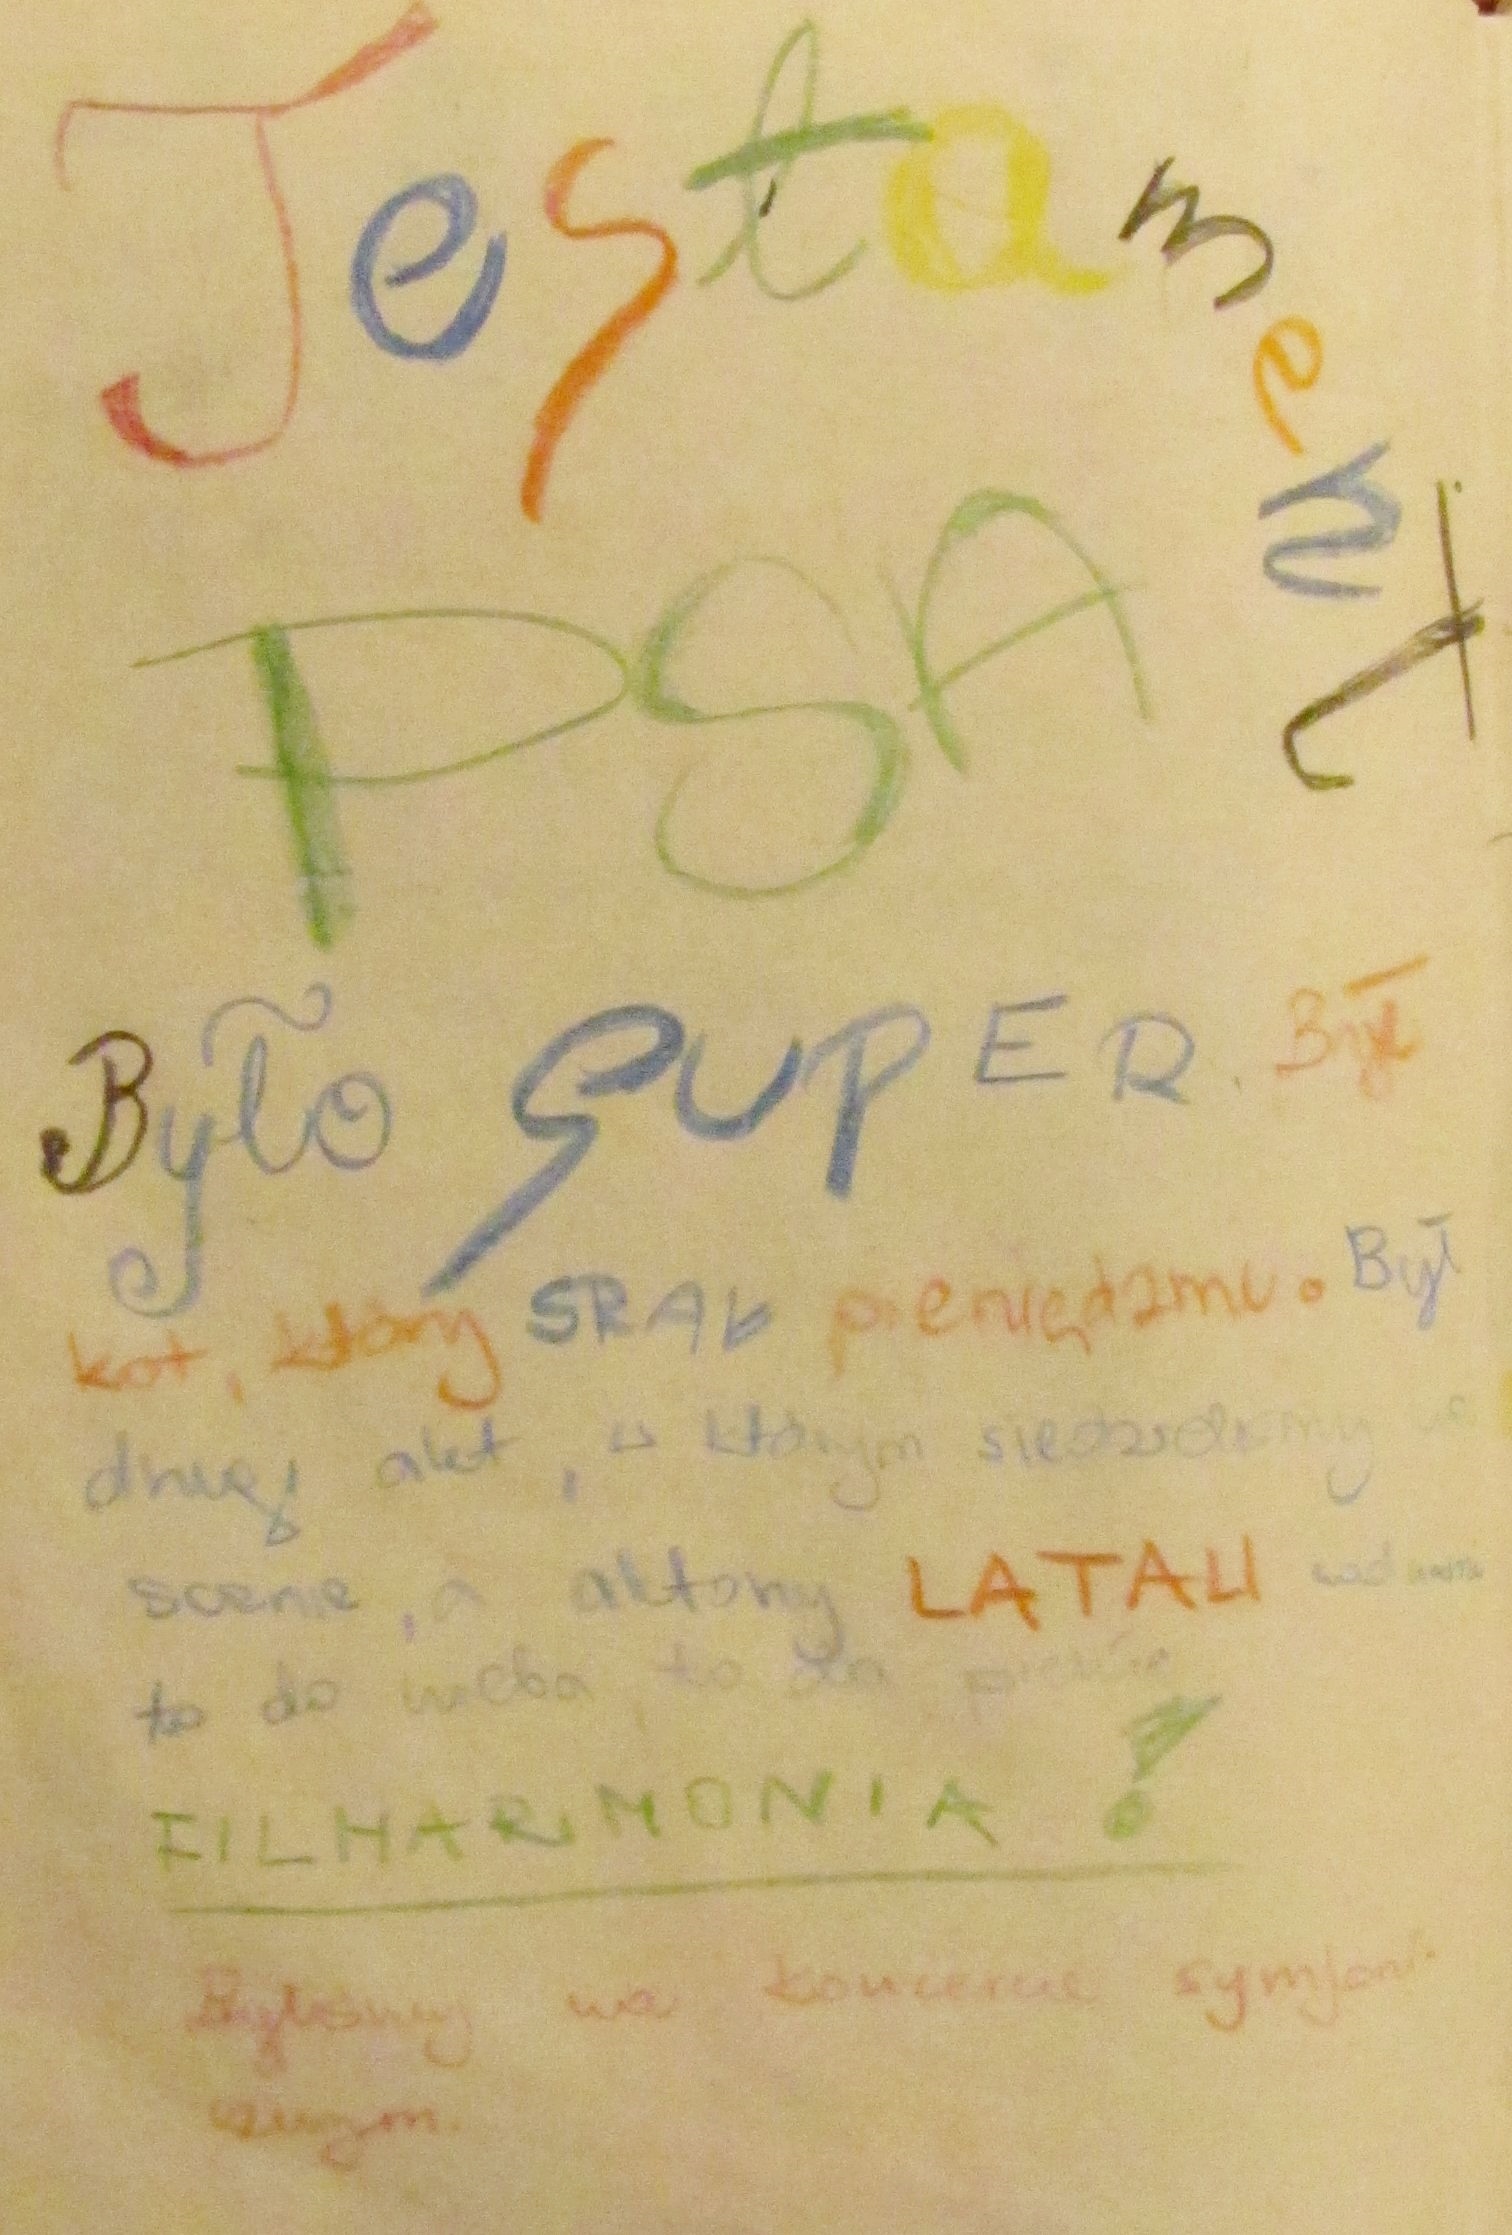 Testament
PSA
Było SUPER. Był
kot, który SRAŁ pieniędzmi. Był
drugi akt, w którym siedzieliśmy na
scenie, a aktorzy LATALI nad nami
to do nieba, to do
FILHARMONIA!
Byliśmy na koncercie symfoni-
cznym.